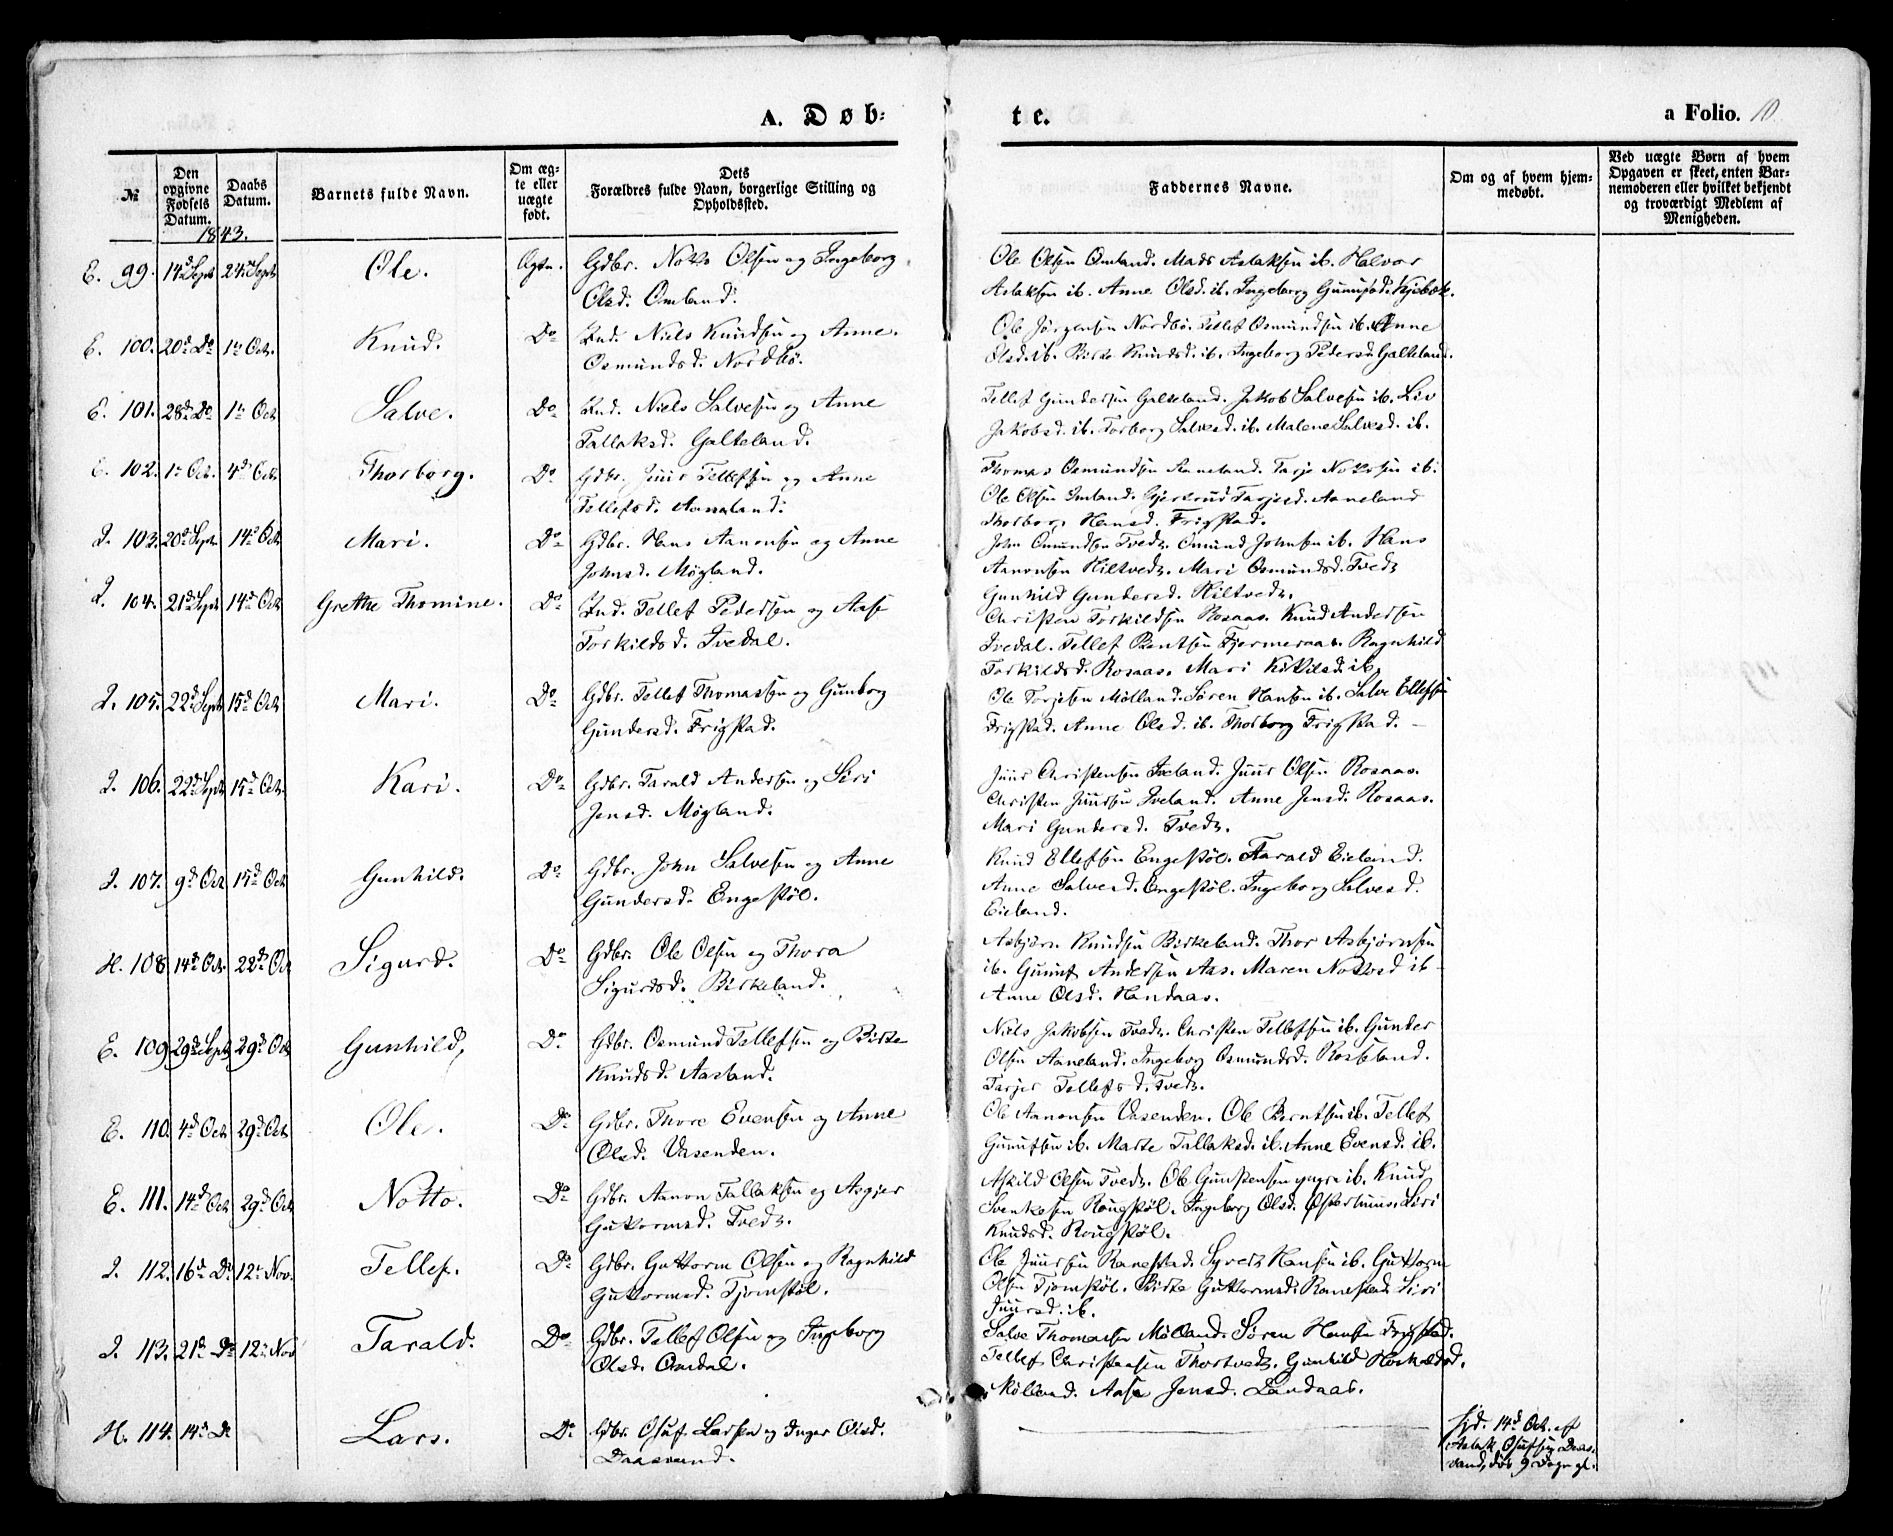 A. Døb-
te.
a Folio. 10
№
Den opgivne Fødsels Datum.
Daabs Datum.
Barnets fulde Navn.
Om ægte eller uægte født.
Dets Forældres fulde Navn, borgerlige Stilling og Opholdssted.
Faddernes Navne.
Om og af hvem hjemmedøbt.
Ved uægte Børn af hvem Opgaven er skeet, enten Barnemoderen eller hvilket bekjendt og troværdigt Medlem af Menigheden.
1843.
E. 99. 14d Sept 24n Sept Ole. Ægte. Gdbr. Notto Olsen og Ingeborg
Olsd. Omland.
Ole Olsen Omland. Mads Aslaksen ib. Halvor
Aslaksen ib. Anne Olsd. ib. Ingeborg Gunufsd. Kjebæk.
E. 100. 20d Do 1n Oct. Knud. Do Ind. Niels Knudsen og Anne
Osmundsd. Nordbø.
Ole Jørgensen Nordbø. Tellef Osmundsen ib. Anne
Olsd. ib. Birte Knudsd. ib. Ingeborg Pedersd. Galteland.
E. 101. 28d Do 1n Oct Salve. Do Ind. Niels Salvesen og Anne
Tallaksd. Galteland.
Tellef Gundersen Galteland. Jakob Salvesen ib. Liv
Jakobsd. ib. Torborg Salvesd. ib. Malene Salvesd. ib.
E. 102. 1n Oct. 4d Oct Thorborg. Do Gdbr. Juur Tellefsen og Anne
Tellefsd. Aaneland.
Thomas Osmundsen Aaneland. Tarje Nottosen ib.
Ole Olsen Omland. Gjertrud Tarjesd. Aaneland
Thorborg Hansd. Frigstad.
I. 103. 20d Sept 14d Oct Mari. Do Gdbr. Hans Aanonsen og Anne
Johnsd. Møgland.
John Omundsen Tvedt. Omund Johnsen ib. Hans
Aanonsen Hiltvedt. Mari Osmundsd. Tvedt
Gunhild Gundersd. Hiltvedt.
I. 104. 21d Sept 14d Oct Grethe Thomine. Do Ind. Tellef Pedersen og Aase
Torkildsd. Ivedal.
Christen Torkildsen Rosaas. Knud Andersen
Ivedal. Tellef Berntsen Fjermeraas. Ragnhild
Torkildsd. Rosaas. Mari Kittilsd. ib.
I. 105. 22d Sept 15d Oct Mari. Do Gdbr. Tellef Thomassen og Gunborg
Gundersd. Frigstad.
Ole Torjesen Mølland. Søren Hansen ib. Salve Ellefsen
Frigstad. Anne Olsd. ib. Thorborg Frigstad.
I. 106. 22d Sept 15d Oct. Kari. Do Gdbr. Tarald Andersen og Siri
Jensd. Møgland.
Juur Christensen Iveland. Juur Olsen Rosaas.
Christen Juursen Iveland. Anne Jensd. Rosaas.
Mari Gundersd. Tvedt.
I. 107. 9d Oct 15d Oct Gunhild. Do Gdbr. John Salvesen og Anne
Gundersd. Engestøl.
Knud Ellefsen Engestøl. Tarald Eieland.
Anne Salvesd. Engestøl. Ingeborg Salvesd.
Eieland.
H. 108 14d Oct. 22d Oct Sigurd. Do Gdbr. Ole Olsen og Thora
Sigurdsd. Birkeland.
Asbjørn Knudsen Birkeland. Thor Asbjørnsen
ib. Gunuf Andersen Aas. Maren Nottosd ib
Anne Olsd. Handaas.
E. 109 29d Sept 29d Oct Gunhild, Do Gdbr. Osmund Tellefsen og Birte
Knudsd. Aasland.
Niels Jakobsen Tvedt. Christen Tellefsen ib. Gunder
Olsen Aaneland. Ingeborg Osmundsd. Rosseland.
Tarjer Tellefsd. Tvedt.
E. 110. 4d Oct 29d Oct Ole. Do Gdbr. Thore Evensen og Anne
Olsd. Vasenden.
Ole Aanonsen Vasenden. Ole Berntsen ib. Tellef
Gunufsen ib. Marte Tallaksd. ib. Anne Evensd. ib.
E. 111. 14d Oct 29d Oct Notto. Do Gdbr. Aanon Tallaksen og Asgjer
Guttormsd. Tvedt.
Askild Olsen Tvedt. Ole Gunstensen yngre ib. Knud
Svenkesen Rougstøl. Ingeborg Olsd. Østerhuus. Siri
Knudsd. Rougstøl.
I. 112. 16d Do 12n Nov. Tellef. Do Gdbr. Guttorm Olsen og Ragnhild
Guttormsd. Tjomstøl.
Ole Juursen Ranestad. Syvert Hansen ib. Guttorm
Olsen Tjomstøl. Birte Guttormsd. Ranestad. Siri
Juursd. ib.
I. 113. 21d Do 12n Nov Tarald. Do Gdbr. Tellef Olsen og Ingeborg
Olsd. Omdal.
Salve Thomassen Mølland. Søren Hansen Frigstad.
Tellef Christensen Thortvedt. Gunhild
Mølland. Aase Jensd. Landaas.
H. 114. 14d Do Lars. Do Gdbr. Oluf Larsen og Inger Olsd.
Daasvand.
Hjd. 14d Oct. af
Aslak Olufsen Daas-
vand, død 9 Dage gl.